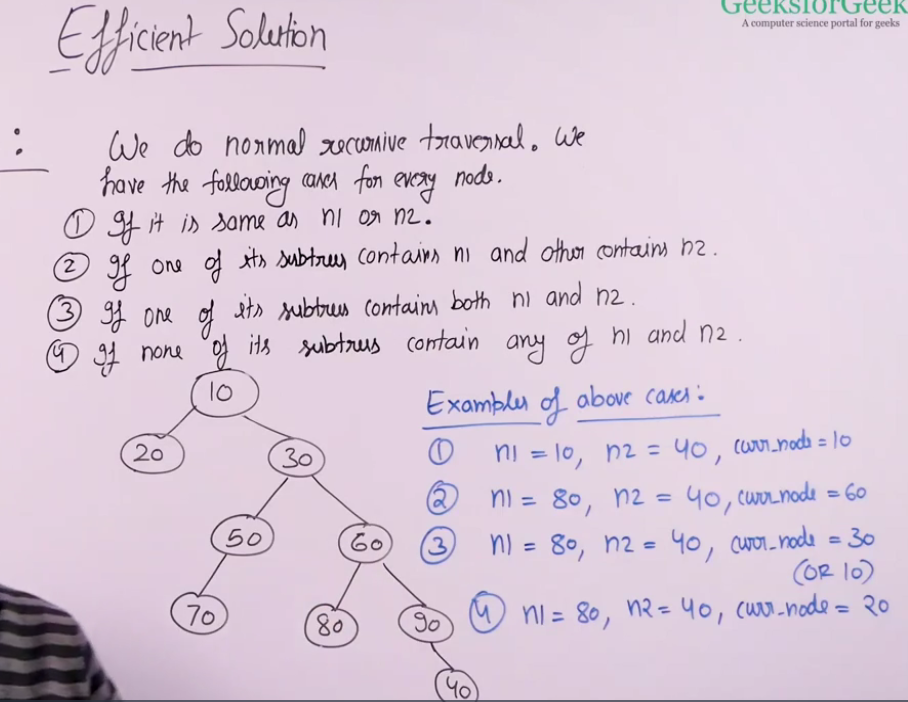 GeeksforGeek
A computer science portal for geeks
Efficient Solution
: We do normal recursive traversal. We
have the following cases for every node.
① If it is same as n1 or n2.
② If one of its subtrees contains n1 and other contains n2.
③ If one of its subtrees contains both n1 and n2.
④ If none of its subtrees contain any of n1 and n2.
10
20
30
50
60
70
80
90
40
Examples of above cases:
① n1 = 10, n2 = 40, curr_node = 10
② n1 = 80, n2 = 40, curr_node = 60
③ n1 = 80, n2 = 40, curr_node = 30
(OR 10)
④ n1 = 80, n2 = 40, curr_node = 20